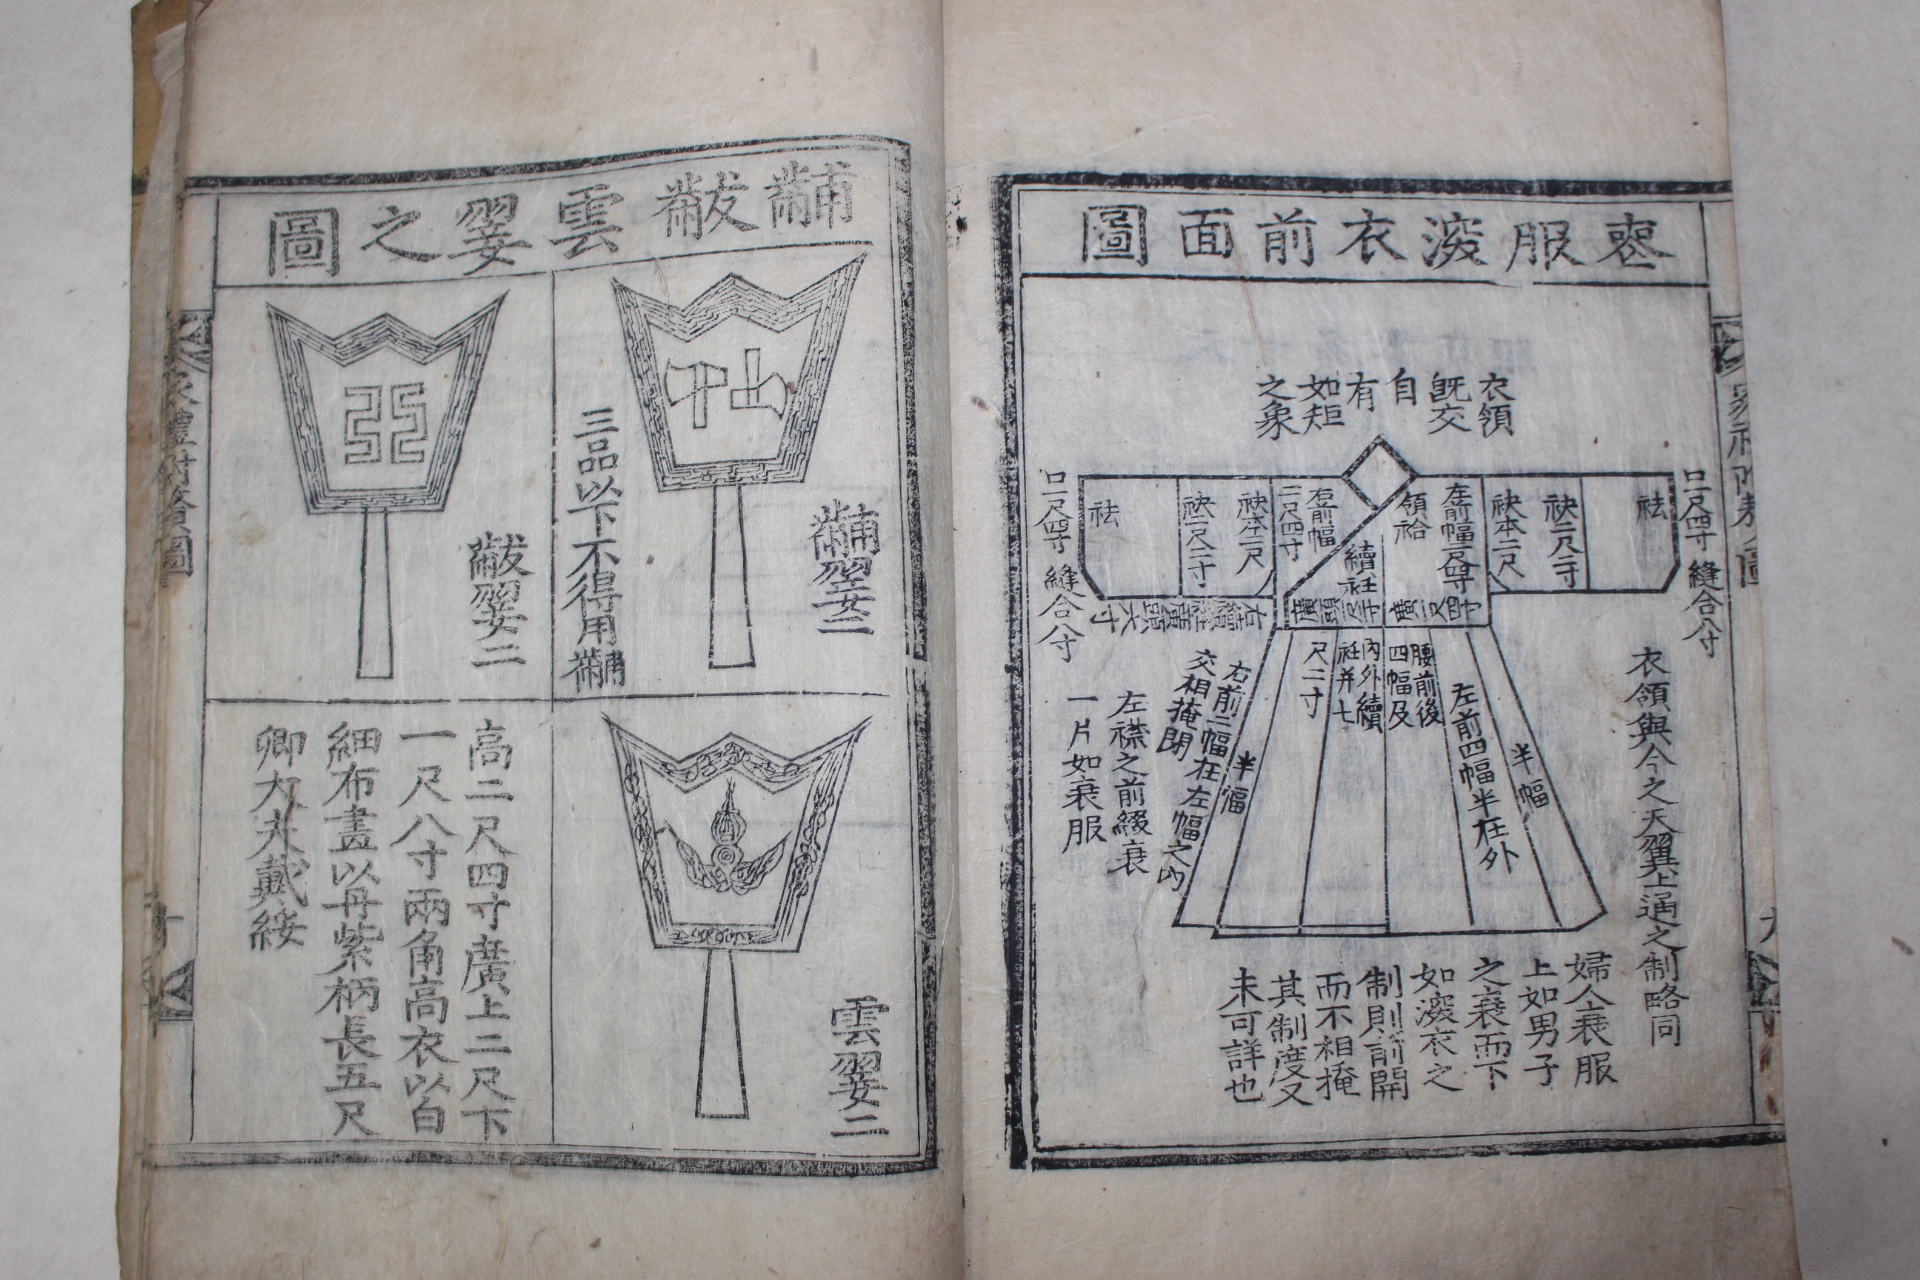 喪服深衣前面圖
衣領
既交
自
有
如矩
之象
口二尺四寸
縫合八寸
袪
袂二尺二寸
袂本二尺
左前幅二尺四寸
領袷
續衽
右前幅
二尺四寸
袂本二尺
袂二尺二寸
袪
口二尺四寸
縫合八寸
腰前後
四幅及
內外續
衽并七
尺二寸
半幅
左前四幅半在外
半幅
右前二幅在左幅之內
交相掩閉
左襟之前綴衰
一片如衰服
衣領與今之天翼上通之制略同
婦人衰服
上如男子
之衰而下
如深衣之
制則前開
而不相掩
其制度又
未可詳也
黼黻雲翣之圖
黼翣二
三品以下不得用黼
黻翣二
雲翣二
高二尺四寸廣上二尺下
一尺八寸兩角高衣以白
細布畫以丹紫柄長五尺
卿大夫戴綏
家禮附贅圖